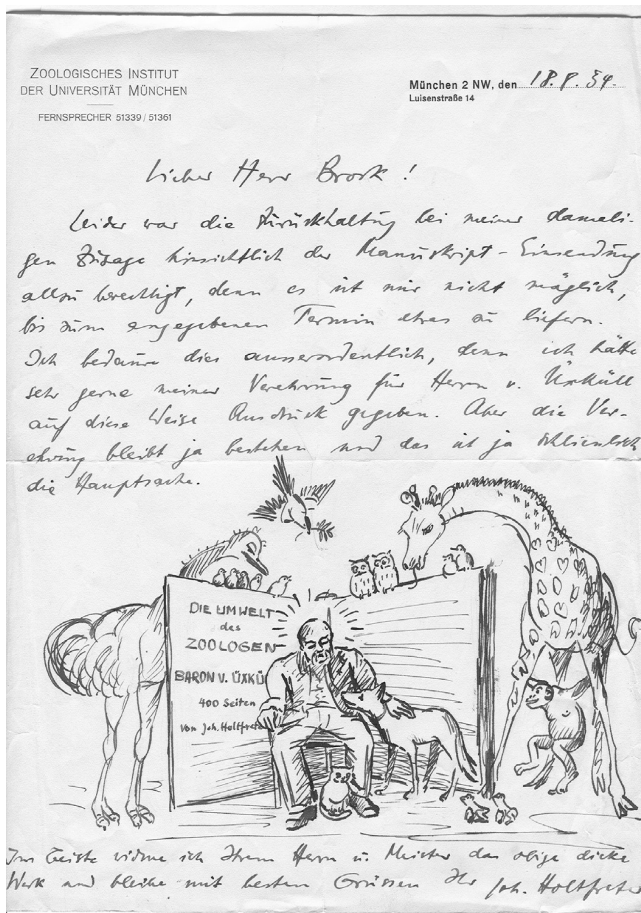 ZOOLOGISCHES INSTITUT
DER UNIVERSITÄT MÜNCHEN
FERNSPRECHER 51339 / 51361
München 2 NW, den 18. 8. 34.
Luisenstraße 14
Lieber Herr Brock !
Leider war die Zurückhaltung bei meiner damali-
gen Zusage hinsichtlich der Manuskript-Einsendung
allzu berechtigt, denn es ist mir nicht möglich,
bis zum angegebenen Termin etwas zu liefern.
Ich bedaure dies ausserordentlich, denn ich hätte
sehr gerne meiner Verehrung für Herrn v. Üxküll
auf diese Weise Ausdruck gegeben. Aber die Ver-
ehrung bleibt ja bestehen und das ist ja schliesslich
die Hauptsache.
DIE UMWELT
des
ZOOLOGEN
BARON V. ÜXKÜ
400 Seiten
von Joh. Holtfrete
Im Geiste widme ich Ihrem Herrn u. Meister das obige dicke
Werk und bleibe mit besten Grüssen Ihr Joh. Holtfreter